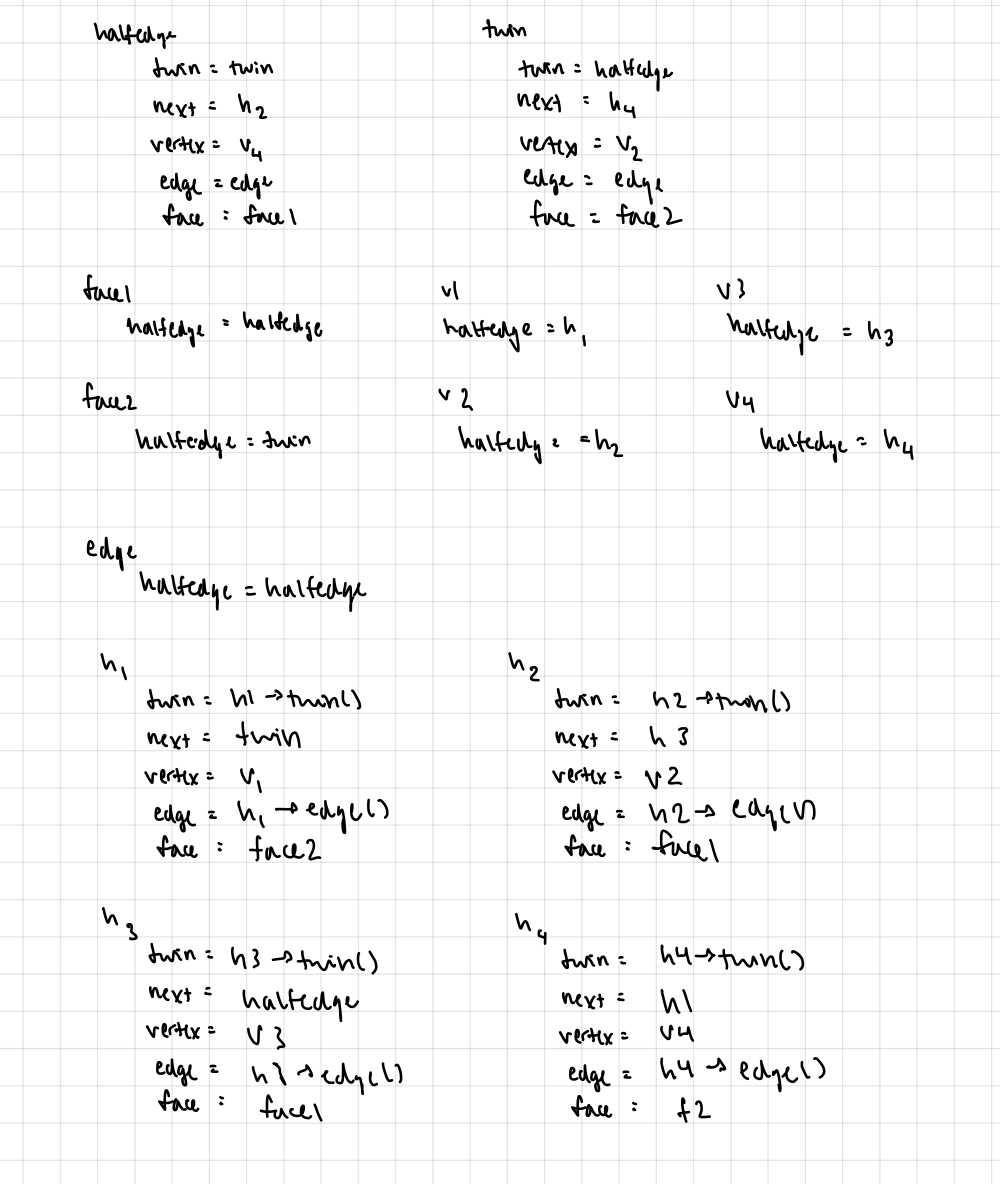 halfedge
twin = twin
next = h2
vertex = v4
edge = edge
face = face1
twin
twin = halfedge
next = h4
vertex = v2
edge = edge
face = face2
face1
halfedge = halfedge
v1
halfedge = h1
v3
halfedge = h3
face2
halfedge = twin
v2
halfedge = h2
v4
halfedge = h4
edge
halfedge = halfedge
h1
twin = h1 → twin()
next = twin
vertex = v1
edge = h1 → edge()
face = face2
h2
twin = h2 → twin()
next = h3
vertex = v2
edge = h2 → edge()
face = face1
h3
twin = h3 → twin()
next = halfedge
vertex = v3
edge = h3 → edge()
face = face1
h4
twin = h4 → twin()
next = h1
vertex = v4
edge = h4 → edge()
face = f2